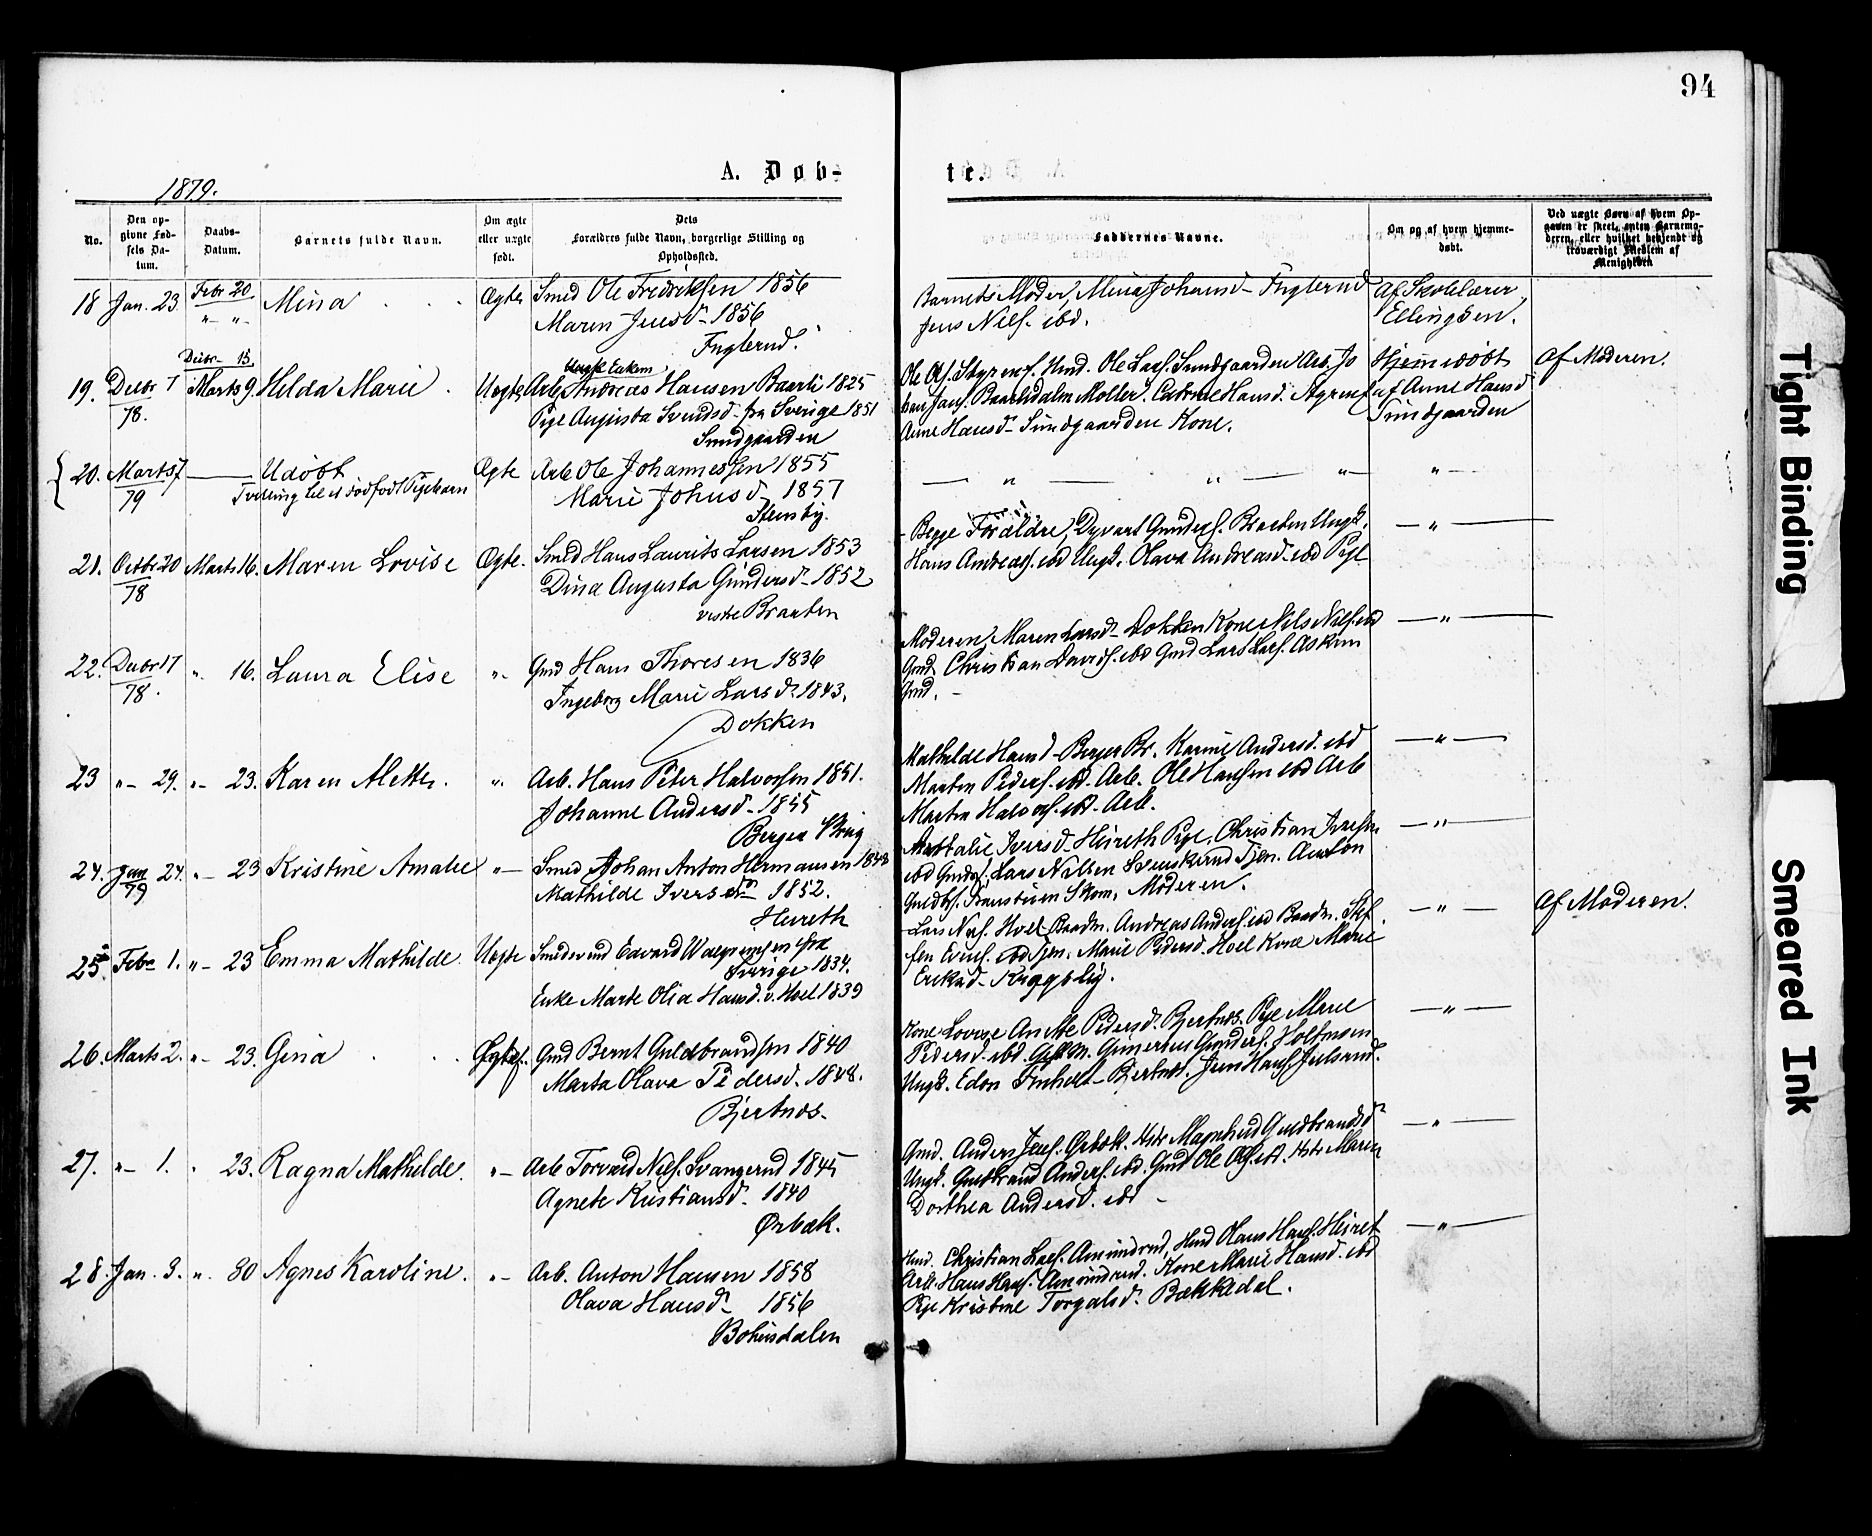 94
A. Døb-
te.
1879.
No.
Den op-
givne Fød-
sels Da-
tum.
Daabs-
Datum.
Barnets fulde Navn.
Om ægte
eller uægte
født.
Dets
Forældres fulde Navn, borgerlige Stilling og
Opholdssted.
Faddernes Navne.
Om og af hvem hjemme-
døbt.
Ved uægte Børn af hvem Op-
gaven er skeet, enten Barnemo-
deren, eller hvilket bekjendt og
troværdigt Medlem af
Menigheden
18 Jan. 23 Febr 20 Mina Ægte Smed Ole Fredriksen 1856
" - " -
Maren Jensd - 1856
Fuglerud.
Barnets Moder, Mina Johansd - Fuglerud
Jens Nils. ibd.
Af Skolelærer
Ellingsen.
19. Decbr 7 Decbr - 15. Marts 9. Helda Marie Uægte Arb. Andreas Hansen Baarli 1825
78.
Pige Augusta Svendsd - fra Sverige 1851
Sundgaarden
Ole Ols. Hmd. Ole Lars. Sundgaarden Arb. Jo
Anne Hansd - Sundgaarden Kone.
Hjemmedøbt
af Anne Hansd
Sundgaarden
Af Moderen.
20. Marts 7 Udøbt Ægte Arb Ole Johannessen 1855
79
Tvilling til et dødfødt Pigebarn
Marie Johnsd - 1857
Stensby.
— " — " — " —
" —
21. Octbr 20 Marts 16. Maren Lovise Ægte. Smed Hans Laurits Larsen 1853
78
Dina Augusta Gundersd - 1852
vestre Braaten
Begge Forældre, Dyvart Gunders. Braaten Ungk.
Hans Andreas. ibd Ungk. Olava Andreasd. ibd Pige
— " —
22. Decbr 17 " 16. Laura Elise " - Gmd Hans Thoresen 1836
78.
Ingeborg Marie Larsd. 1843.
Dokken
Moderen, Maren Larsd - Dokken Kone Nils Nils. ibd
Gmd. Christian Davids. ibd Gmd Lars Lars. Askim
Gmd. -
— " —
23 " - 29. " - 23. Karen Alette. " - Arb. Hans Peter Halvorsen 1851.
Johanne Andersd - 1855
Berger
Mathilde Hansd - Berger Br. Karine Andersd. ibd
Martin Peders. ibd. Arb. Ole Hansen ibd Arb
Martin Halvors. ibd. Arb.
— " —
24. Jan 24. " - 23 Kristine Amalie " - Smed Johan Anton Hermansen 1848
79
Mathilde Iversd - 1852.
Heireth
Nathalie Iversd - Heireth Pige. Christian Iversen
ibd Lars Nilsen Tjen. Anton
Guldbs. Skom. Moderen.
— " —
25. Febr 1. " - 23 Emma Mathilde. Uægte Smedsvend Edvard fra
Sverige 1834.
Enke Marte Olia Hansd. v. Hoel 1839
Lars Nils. Hoel Baadm. Andreas Anders. ibd Baadm. Stef
fen Evens. ibd Tjen. Marie Pedersd. Hoel Kone Marie
Eriksd -
— " —
Af Moderen.
26. Marts 2. " - 23. Gina Ægtef. Gmd Bernt Guldbrandsen 1840
Marta Olava Pedersd. 1848.
Bjertnæs -
Kone Lovise Anette Pedersd. Bjertnæs. Pige Marie
Pedersd. ibd. Gunerius Gunders.
Ungk. Edon Bjertnæs. Jens Hans. Julsrud.
— " —
27. " - 1. " 23. Ragna Mathilde. " - Arb Torvald Nils. Svangerud 1845
Agnete Kristiansd - 1840
Ørbæk.
Gmd. Anders Jens. Ørbæk. Hstr Magnhild Guldbrandsd
Ungk. Guldbrand Anders. ibd. Gmd Ole Ols. ibd. Hstr Maren
Dorthea Andersd. ibd -
— " —
28. Jan. 3. " . 30 Agnes Karoline. " - Arb. Anton Hansen 1858
Olava Hansd - 1856
Bohusdalen
Hmd. Christian Lars. Amundrud, Hmd Olaus Hans. Heiret
Arb. Hans Hans. Amundrud. Kone Marie Hansd. ibd
Pige Kristine Torgalsd. Bækkedal.
— " —
Tight Binding
Smeared Ink